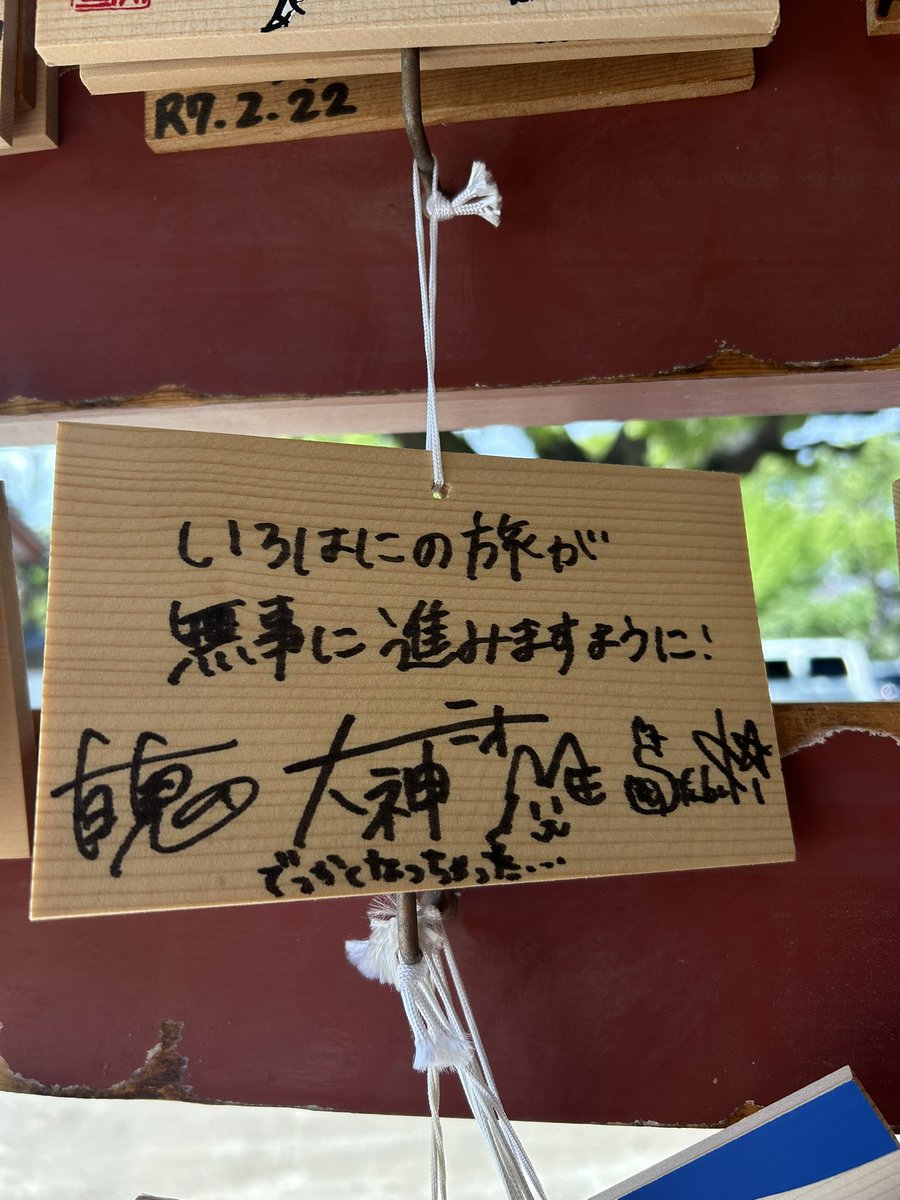 R7.2.22
いろはにの旅が
無事に進みますように!
大神
でっかくなっちゃった…